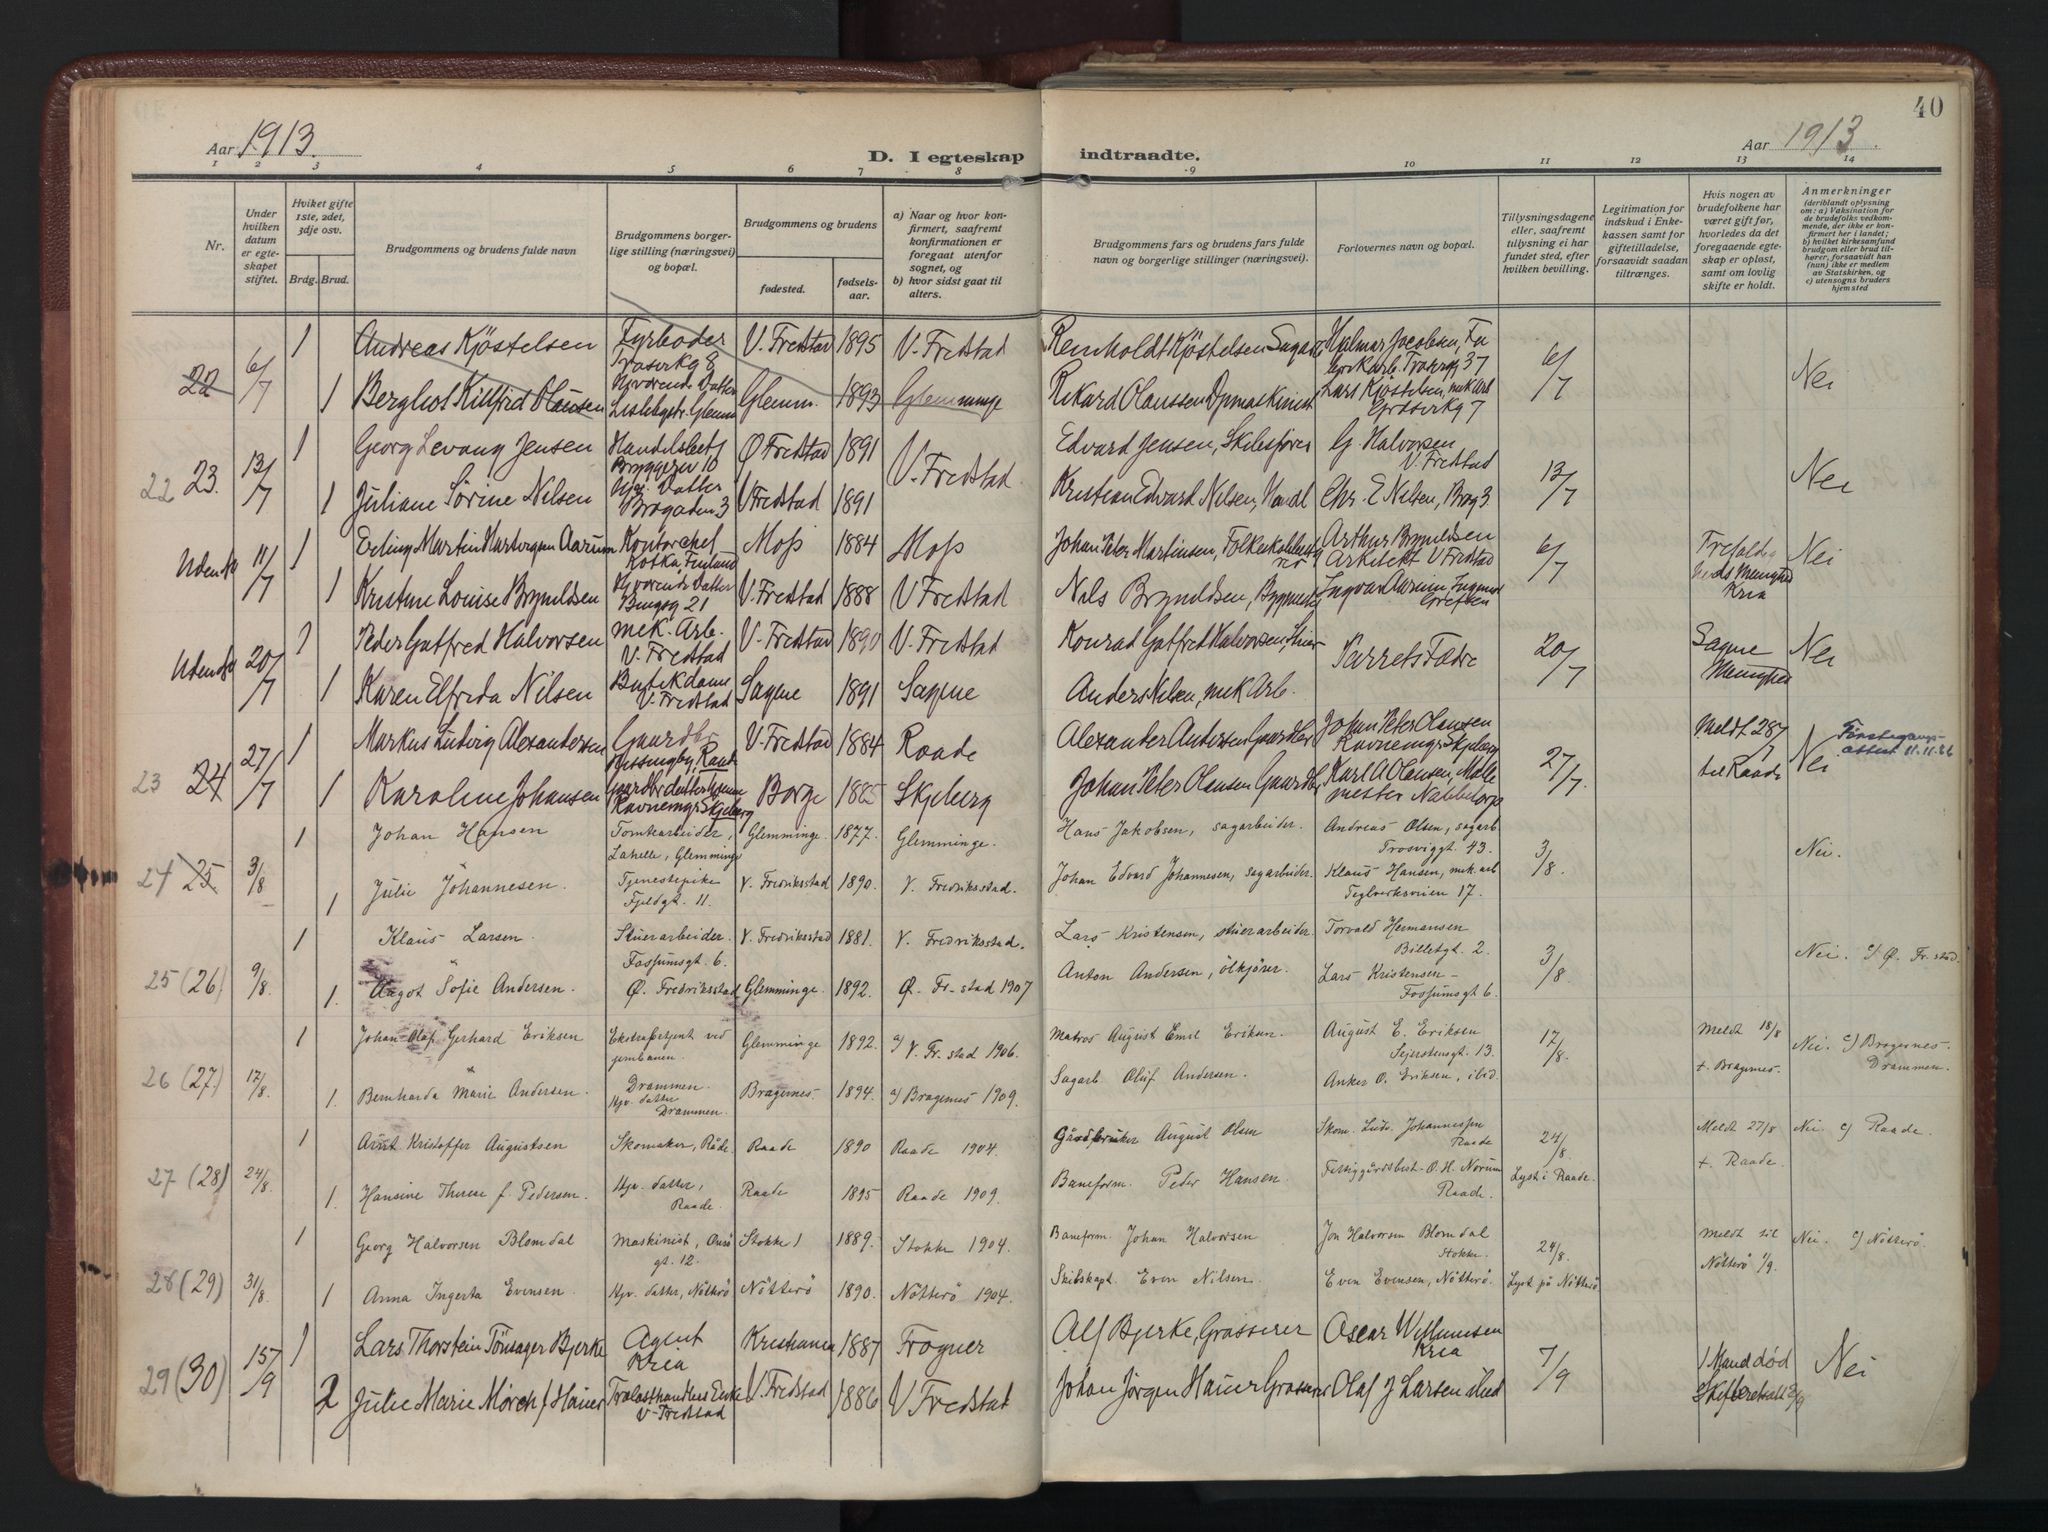 40
Aar 1913.
D. I egteskap indtraadte.
Aar 1913.
1 2 3 4 5 6 7 8 9 10 11 12 13 14
Nr.
Under hvilken datum er egteskapet stiftet.
Hviket gifte 1ste, 2det, 3dje osv.
Brdg. Brud.
Brudgommens og brudens fulde navn
Brudgommens borgerlige stilling (næringsvei) og bopæl.
Brudgommens og brudens
fødested.
fødselsaar.
a) Naar og hvor konfirmert, saafremt konfirmationen er foregaat utenfor sognet, og
b) hvor sidst gaat til alters.
Brudgommens fars og brudens fars fulde navn og borgerlige stillinger (næringsvei).
Forlovernes navn og bopæl.
Tillysningsdagene eller, saafremt tillysning ei har fundet sted, efter hvilken bevilling.
Legitimation for indskud i Enkekassen samt for giftetilladelse, forsaavidt saadan tiltrænges.
Hvis nogen av brudefolkene har været gift før, hvorledes da det foregaaende egteskap er opløst, samt om lovlig skifte er holdt.
Anmerkninger
(deriblandt oplysning om: a) Vaksination for de brudefolks vedkommende, der ikke er konfirmert her i landet; b) hvilket kirkesamfund brudgom eller brud tilhører, forsaavidt han (hun) ikke er medlem av Statskirken, og c) utensogns bruders hjemsted
22 6/7 1 Andreas Kjøstelsen Fyrbøder Traraverkg 8 V. Fredstad 1895 V. Fredstad Reinholdt Kjøstelsen Hjalmar Jacobsen 6/7 Nei
1 Bergliot Olaussen Hjvorende Datter Lislebyg. Glemm Glemm. 1893 Glemminge Rikard Olaussen Opmaskinist Lars Kjøstelsen, mek Arb
22 23. 13/7 1 Georg Levang Jensen Handelsbet Bryggeriv 10 Ø Fredstad 1891 V. Fredstad Edvard Jensen, Skibsfører G. Halvorsen V. Fredstad 13/7 Nei
1 Juliane Sørine Nilsen Hj. Datter Brogaden 3 V Fredstad 1891 Kristian Edvard Nilsen, Handl Chr. E Nilsen, Brog 3
Uden No 11/7 1 Erling Martin Hartvigsen Aarum Kontorchef Kotka, Finland Moss 1884 Moss Johan Peter Martinsen, Arthur Brynildsen Arkitekt V Fredstad 6/7 Trefoldigheds Menighed Kria Nei
1 Kristine Louise Brynildsen Hjvorende Datter 21 V. Fredstad 1888 V Fredstad Nils Brynildsen, Bygmester Ingvar Aarum, Ingeniør Grefsen
Uden No 20/7 1 Peder Gotfred Halvorsen mek. Arb. V. Fredstad V. Fredstad 1890 V. Fredstad Konrad Gotfred Halvorsen, Stuer Parrets Fædre 20/7 Sagne Menighed Nei
1 Karen Elfrida Nilsen Butikdame V. Fredstad Sagne 1891 Sagne Anders Nilsen, mek Arb.
23 24 27/7 1 Markus Ludvig Alexandersen Gaardbr Missingby, Raade V. Fredstad 1884 Raade Alexander Andersen Gaardbr Johan Peter Olausen Ravneng, Skjeberg 27/7 Meldt 28/7 til Raade Nei Førstegangsattest 11.11.86
1 Karoline Johansen Gaardbr datter hjemme Ravneng. Skjeberg Borge 1885 Skjeberg Johan Peter Olausen Gaardbr Karl A Olausen, Malemester Nabbetorp
24 25 3/8 1 Johan Hansen Tomtearbeider, Lahelle, Glemminge Glemminge. 1877. Glemminge. Hans Jakobsen, sagarbeider. Andreas Olsen, sagarb. Trosviggt. 43. 3/8. Nei.
1 Julie Johannesen. Tjenestepike Fjeldgt. 11. V. Fredriksstad 1890. V. Fredriksstad. Johan Edvard Johannesen, sagarbeider. Klaus Hansen, mek. arb Teglverksveien 17.
25 (26) 9/8. 1 Klaus Larsen. Stuerarbeider. Fossumsgt. 6. V. Fredriksstad 1881. V. Fredriksstad. Lars Kristensen, stuerarbeider. Torvald Hermansen Billetgt. 2. 3/8. Nei. c/ Ø. Fr.stad.
1. Aagot Sofie Andersen. Ø. Fredriksstad Glemminge. 1892. Ø. Fr.stad 1907 Anton Andersen, ølkjører. Lars Kristensen – Fossumsgt 6.
26 (27.) 17/8. 1 Johan Olaf Gerhard Eriksen Ekstrabetjent ved jernbanen. Drammen. Glemminge 1892. a/ V. Fr.stad 1906. Matros August Emil Eriksen. August E. Eriksen Sejerstensgt. 13. 17/8. Meldt 18/8 t. Bragernes. Nei. c/ Bragernes. Drammen.
1. Bernharda Marie Andersen. Hjv. datter Drammen. Bragernes. 1894. a/ Bragernes 1909. Sagarb. Oluf Andersen. Anker O. Eriksen, ibid.
27 (28) 24/8. 1 Arnt Kristoffer Augustsen Skomaker, Råde. Raade 1890 Raade 1904. Gårdbruker August Olsen Skom. Ludv. Johannessen Raade 24/8. Lyst i Raade. Meldt 27/8 t. Raade. Nei c/ Raade.
1. Hansine Therese f. Pedersen. Hjv. datter, Raade. Raade 1895 Raade 1909. Baneform. Peder Hansen. Fattiggårdsbest. O. H. Norum Raade.
28 (29) 31/8. 1 Georg Halvorsen Blomdal Maskinist, Onsøgt. 12. Stokke 1889. Stokke 1904. Baneform. Johan Halvorsen Jon Halvorsen Blomdal Stokke. 24/8. Lyst på Nøtterø. Meldt til Nøtterø 1/9. Nei. c/ Nøtterø.
1 Anna Ingerta Evensen. Hjv. datter, Nøtterø Nøtterö 1890. Nøtterø 1904. Skibskapt. Even Nilsen. Even Evensen, Nøtterö.
29 (30) 15/9 1 Lars Thorstein Tønsager Bjerke Agent Kria Kristiania 1887 Frogner Alf Bjerke, Grosserer Oscar Willumsen Kria 7/9 1 Mand død Skifteretsatt 2/9 Nei
2 Julie Marie Mørch f Hauer Trælasthandlers Enke V. Fredstad V. Fredstad 1886 V Fredstad Johan Jørgen Hauer Grosserer Olaf J Larsen ibid